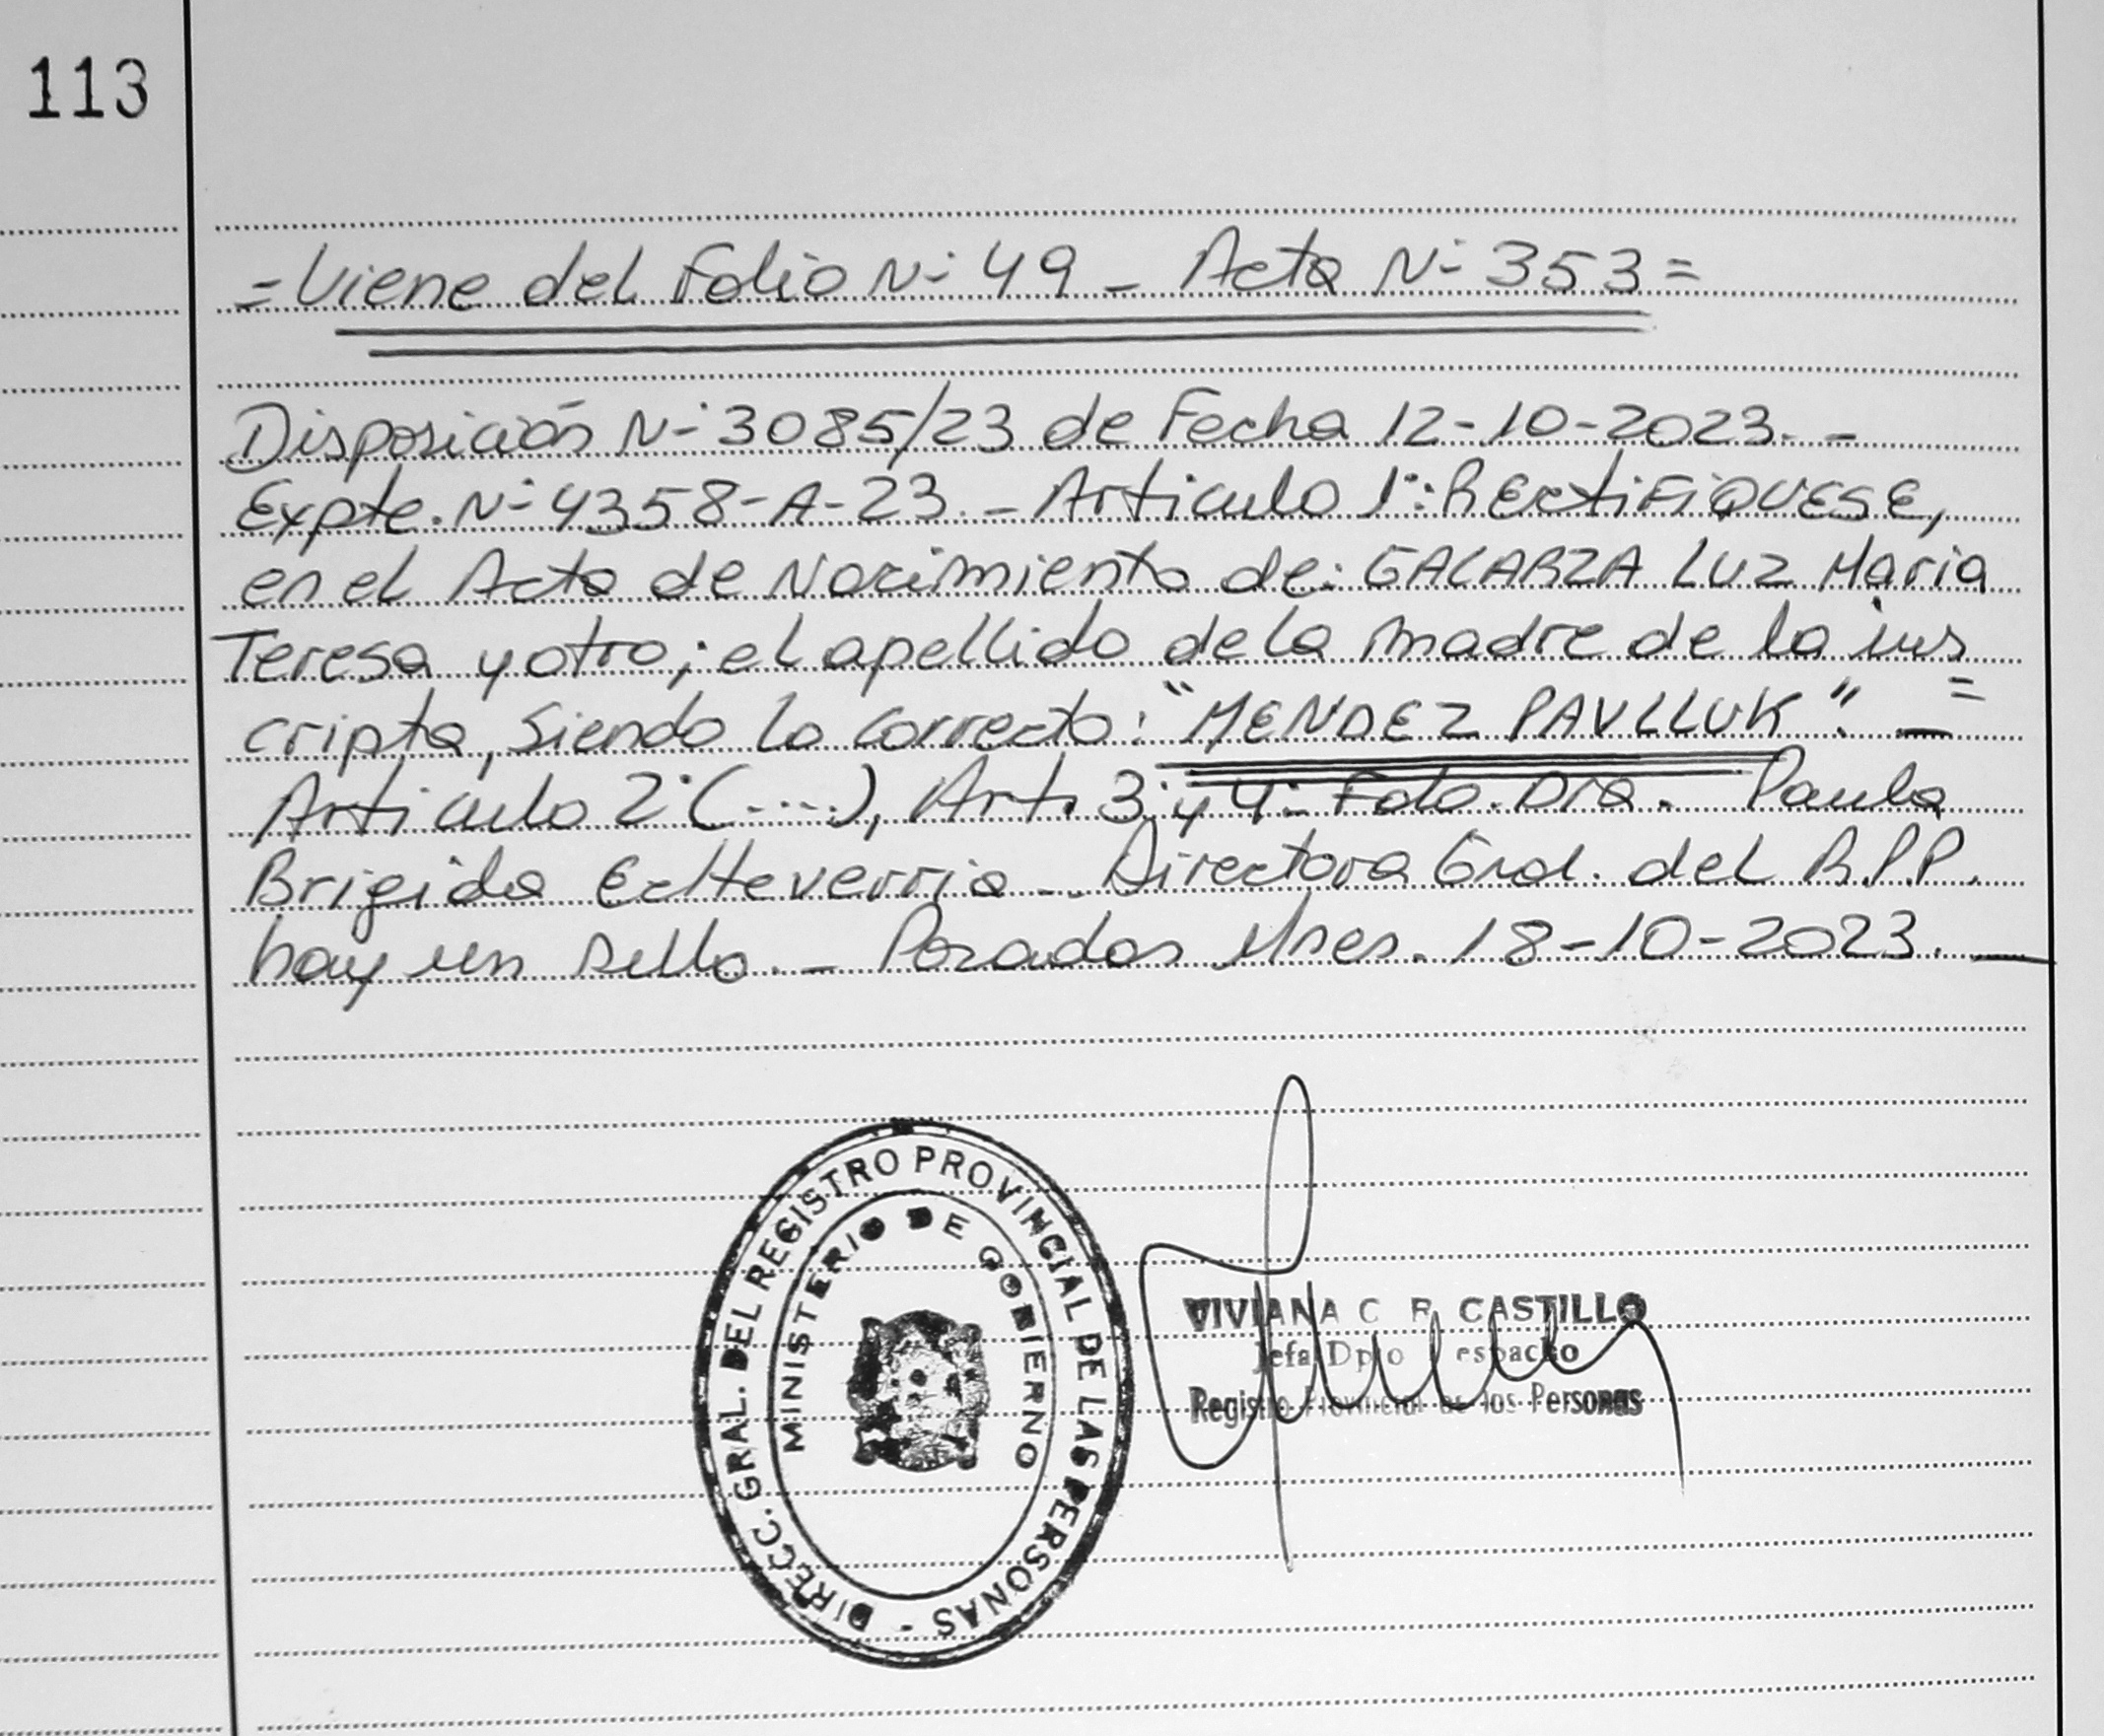 113
=Viene del Folio Nº 49 - Acta Nº 353=
Disposición Nº 3085/23 de Fecha 12-10-2023. -
Expte. Nº 4358-A-23. - Articulo 1º: RectiFiQUESE,
en el Acta de Nacimiento de: GALARZA LUZ Maria
Teresa y otro; el apellido de la madre de la ins
cripta, Siendo lo correcto: "MENDEZ PAVLLUK". =
Articulo 2º (....), Art. 3º y 4º Fdo. Dra. Paula
Brigida Echeverria - Directora Gral. del R.P.P.
hay un sello. - Posadas Mnes. 18-10-2023. -
DIRECC. GRAL. DEL REGISTRO PROVINCIAL DE LAS PERSONAS -
MINISTERIO DE GOBIERNO
VIVIANA C R CASTILLO
Jefa Dpto Despacho
Registro Provincial de las Personas